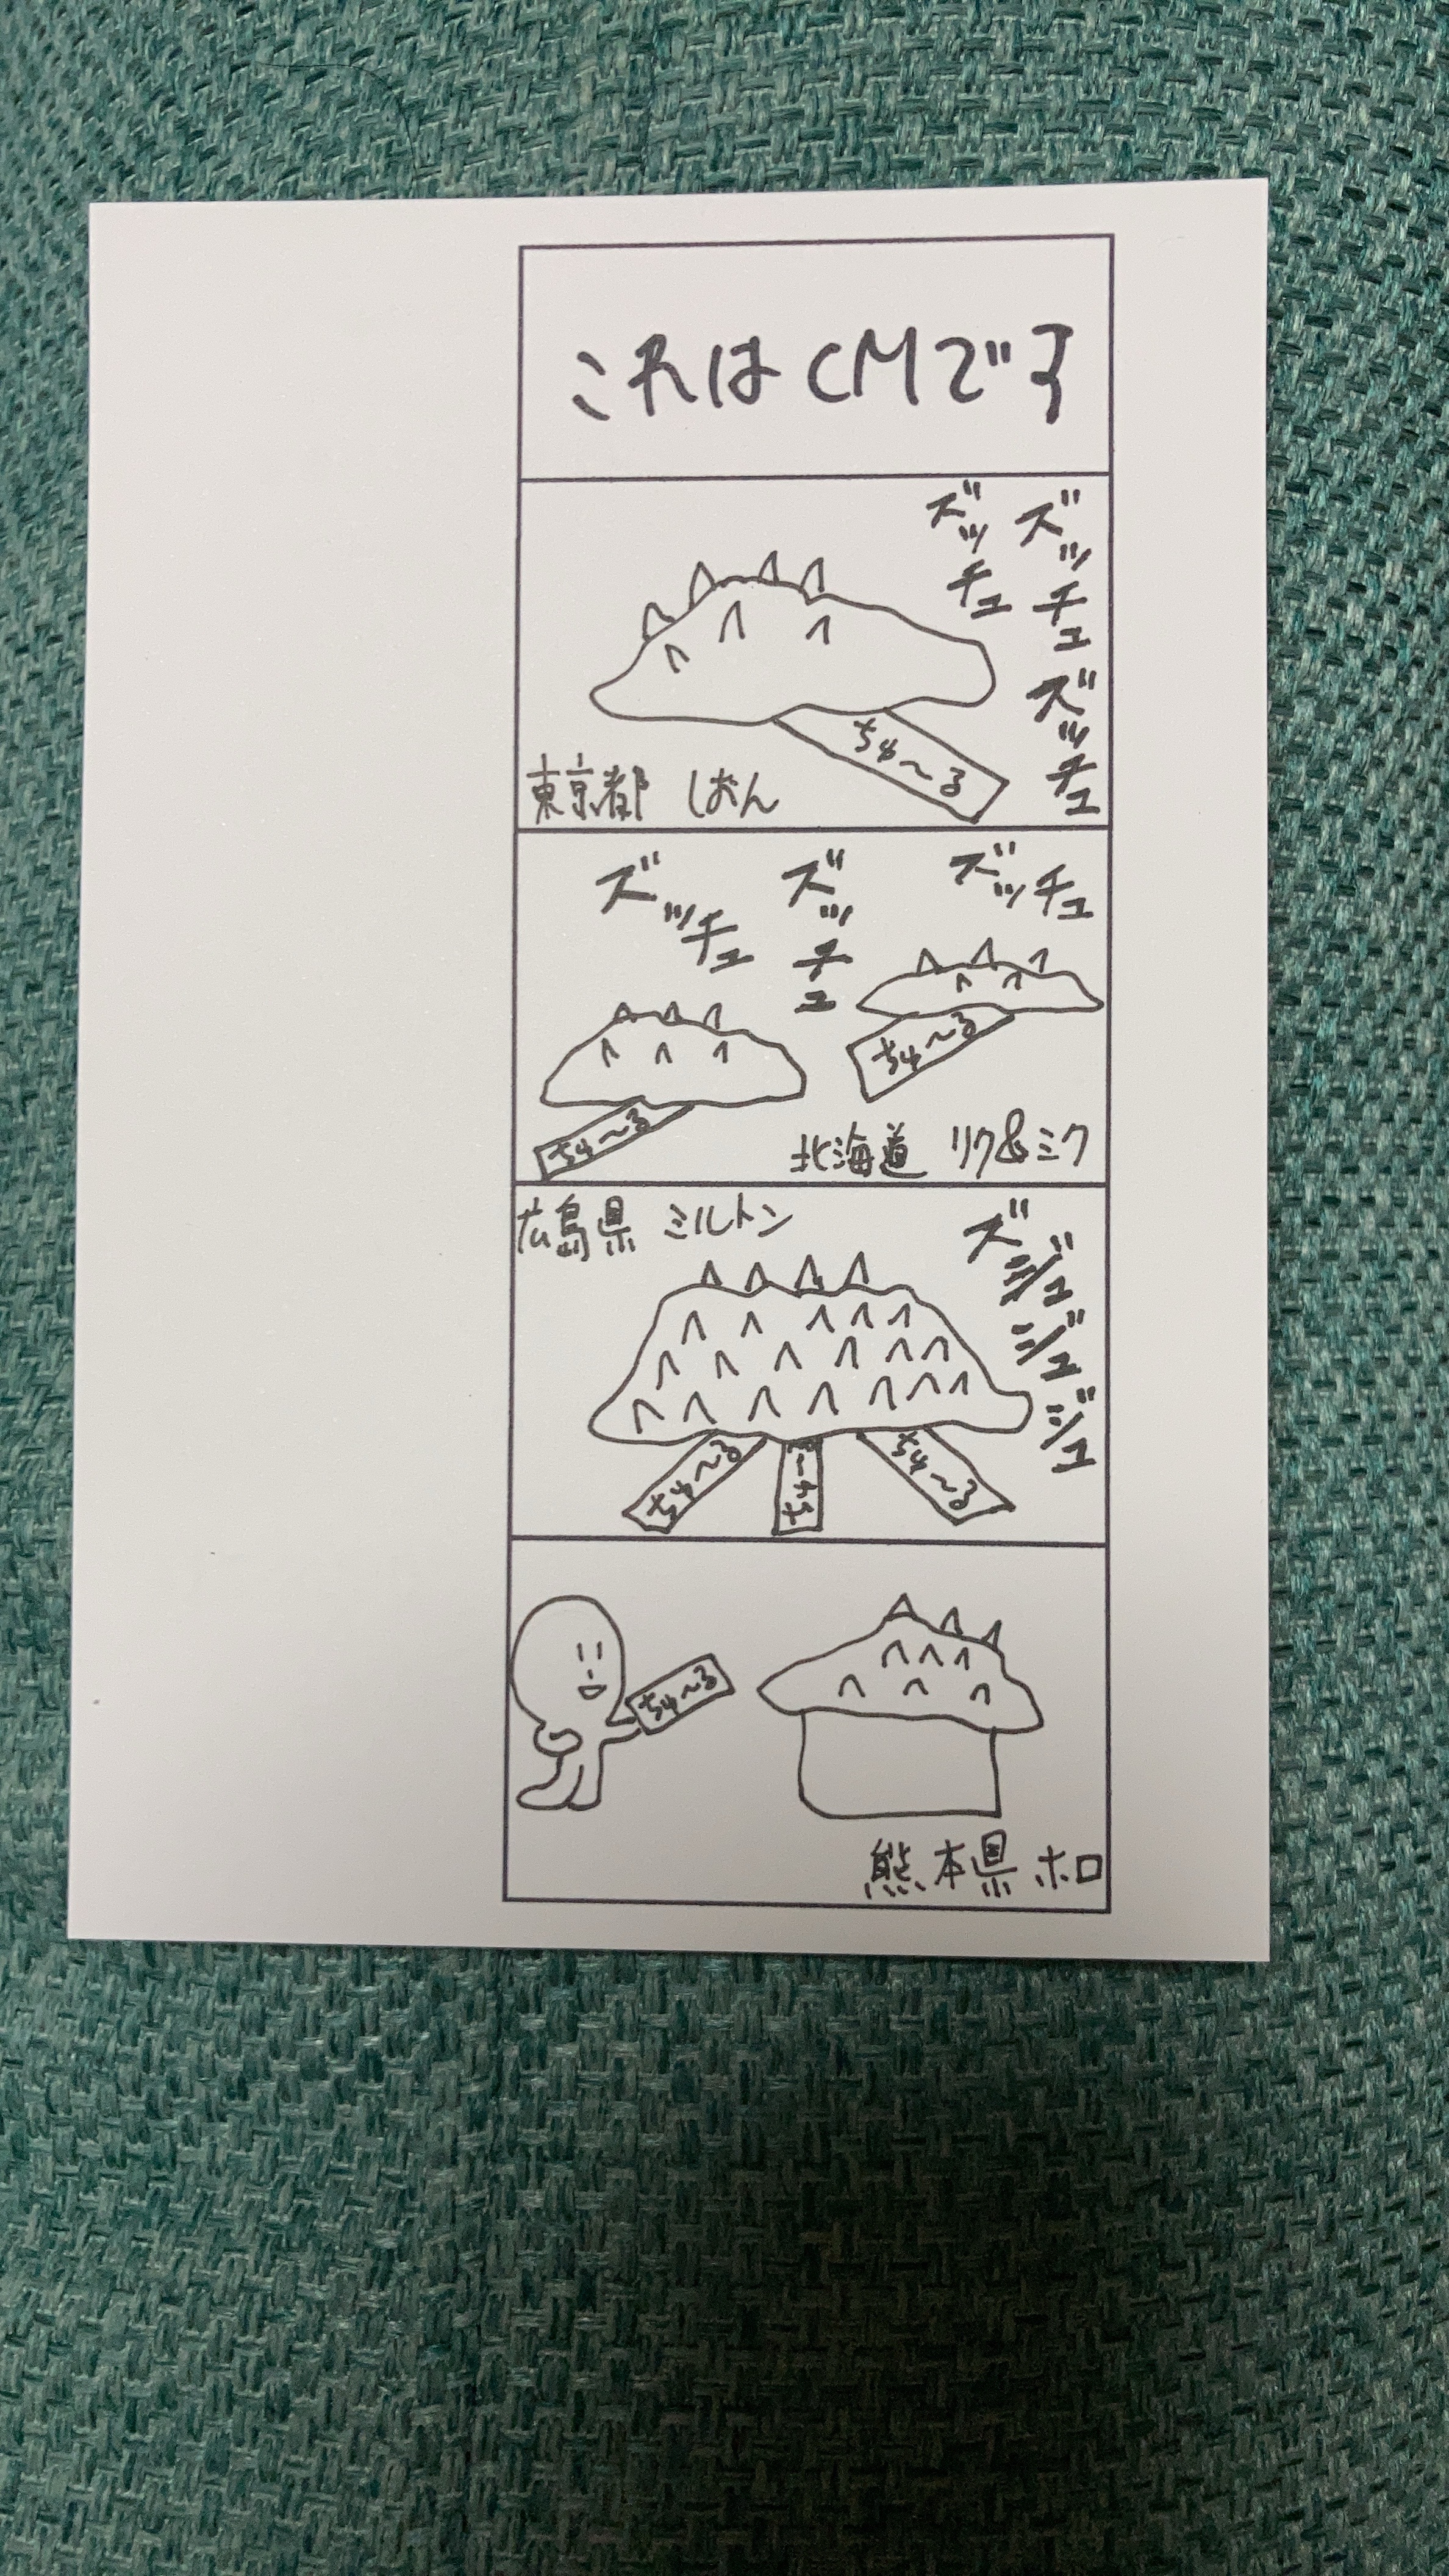 これはCMです
ズッチュ
ズッチュ
ズッチュ
ちゅ〜る
東京都 しおん
ズッチュ
ズッチュ
ズッチュ
ちゅ〜る
ちゅ〜る
北海道 リク&ミク
広島県 ミルトン
ズッジュ
ッジュ
ッジュ
ちゅ〜る
ちゅ〜
ちゅ〜る
ちゅ〜る
熊本県 ホロ